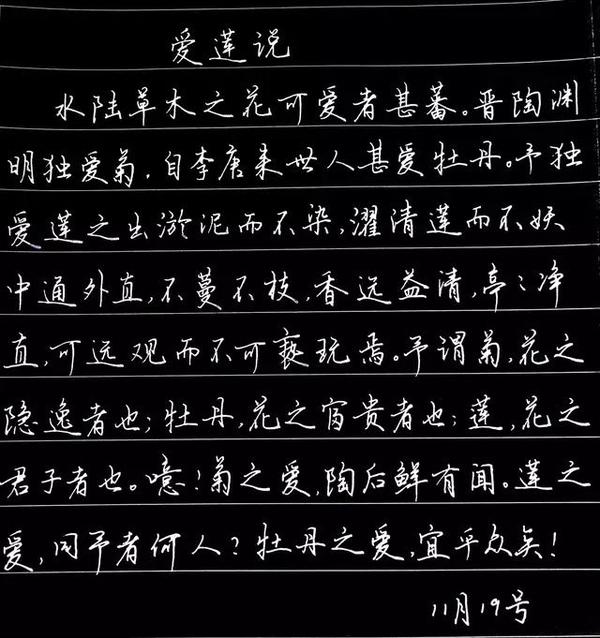 爱莲说
水陆草木之花可爱者甚蕃。晋陶渊
明独爱菊，自李唐来世人甚爱牡丹。予独
爱莲之出淤泥而不染，濯清莲而不妖
中通外直，不蔓不枝，香远益清，亭〻净
直，可远观而不可亵玩焉。予谓菊，花之
隐逸者也；牡丹，花之富贵者也；莲，花之
君子者也。噫！菊之爱，陶后鲜有闻。莲之
爱，同予者何人？牡丹之爱，宜乎众矣！
11月19号